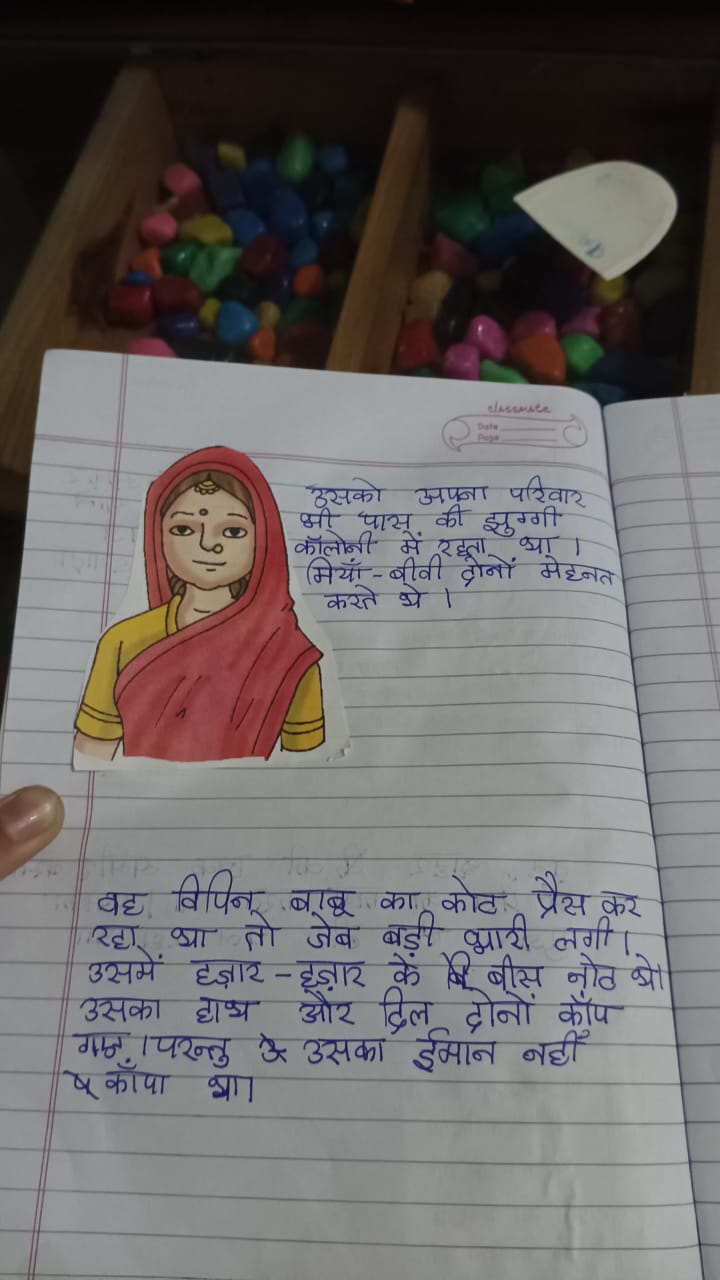 classmate
Date
Page
उसको अपना परिवार
भी पास की झुग्गी
कॉलोनी में रहता था ।
मियाँ-बीवी दोनों मेहनत
करते थे ।
वह विपिन बाबू का कोट प्रैस कर
रहा था तो जेब बड़ी भारी लगी।
उसमें हज़ार-हज़ार के बीस नोट थे।
उसका हाथ और दिल दोनों काँप
गए। परन्तु उसका ईमान नहीं
काँपा था।